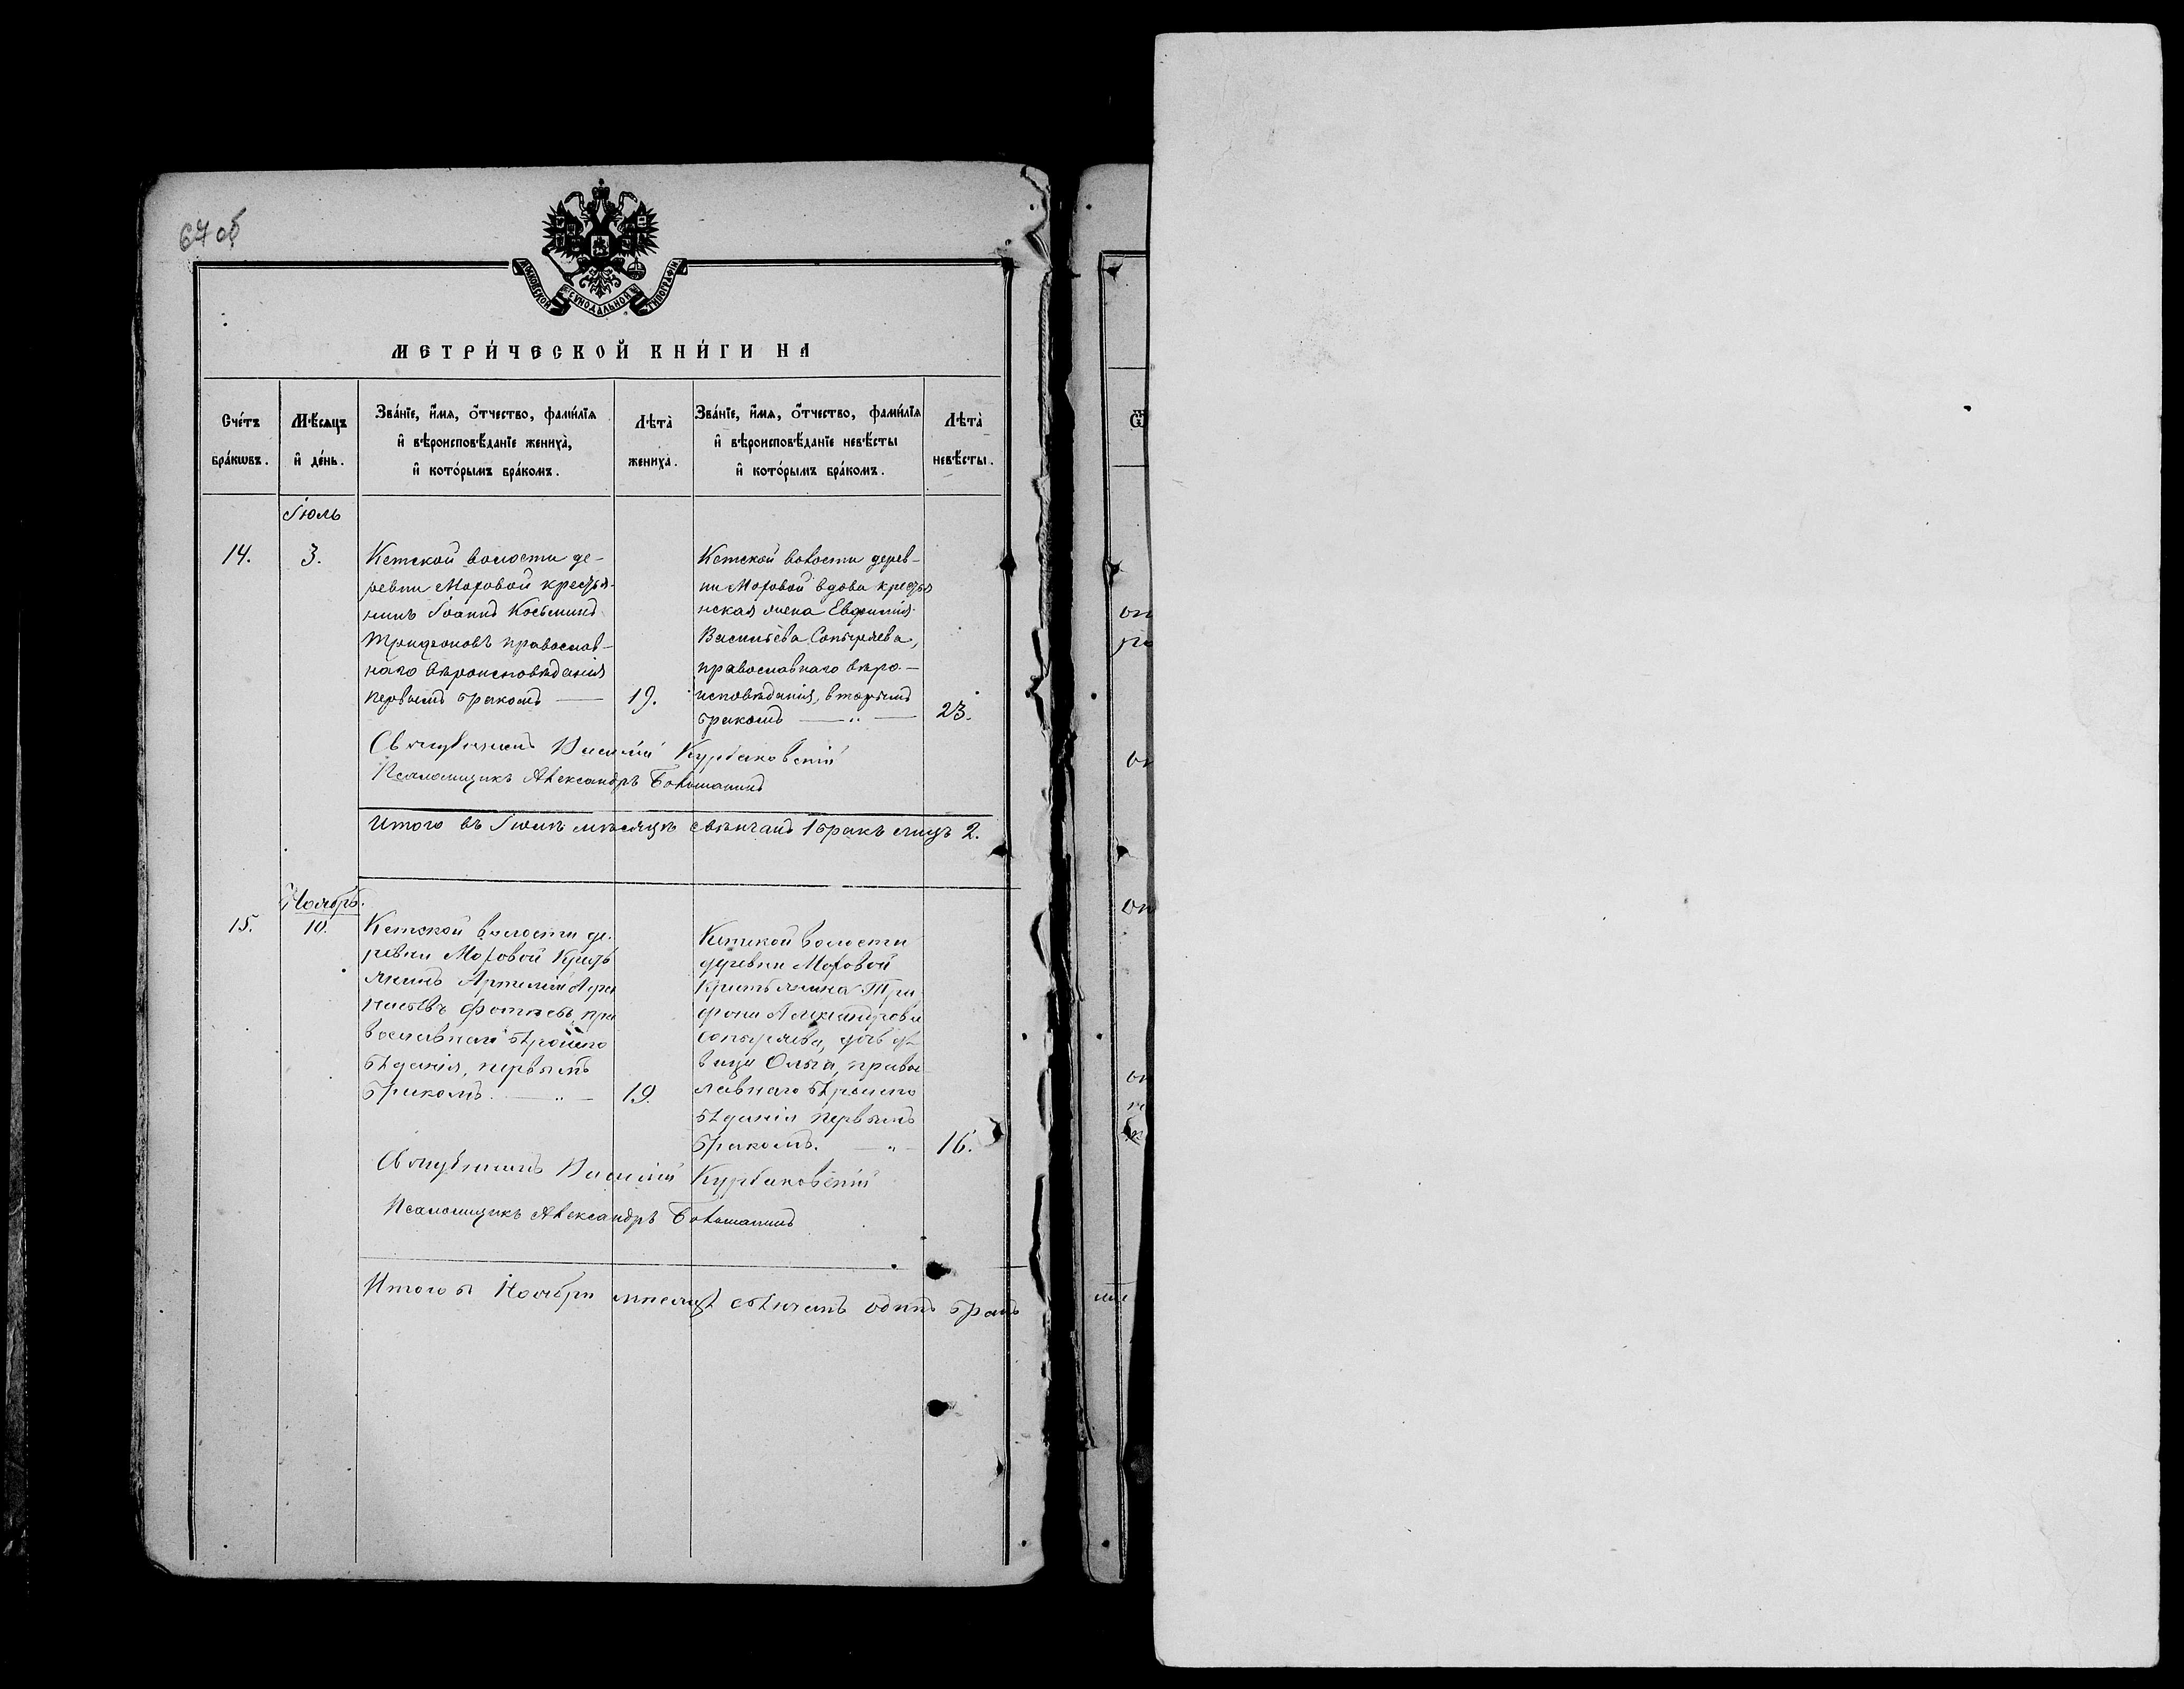 67 об
МОСКОВСКОЙ СУНОДАЛЬНОЙ ТИПОГРАФІИ
МЕТРИ́ЧЕСКОЙ КНИ́ГИ НА
Сче́тъ бра́кѡвъ.
Мѣ́сяцъ и҆ де́нь.
Зва́нїе, и҆́мя, ѻ҆́тчество, фами́лїя
и҆ вѣроисповѣ́данїе жениха̀,
и҆ кото́рымъ бра́комъ.
Лѣта̀ жениха̀.
Зва́нїе, и҆́мя, ѻ҆́тчество, фами́лїя
и҆ вѣроисповѣ́данїе невѣ́сты
и҆ кото́рымъ бра́комъ.
Лѣта̀ невѣ́сты.
Іюль
14.
3.
Кетской волости де-
ревни Моховой крестья-
нинъ Іоаннъ Косьминъ
Трифоновъ православ-
наго вѣроисповѣданія
первымъ бракомъ —
19.
Кетской волости дерев-
ни Моховой вдова крестья
нская жена Евфимія
Васильева Сопыряева,
православнаго вѣро-
исповѣданія, вторымъ
бракомъ — „ —
23.
Священникъ Василій Курбаковскій
Псаломщикъ Александръ
Итого въ Іюлѣ мѣсяцѣ свѣнчанъ 1 бракъ лицъ 2.
Ноябрь.
15.
10.
Кетской волости де-
ревни Моховой Кресть
янинъ Артемій Афа
насьевъ Фотѣевъ, пра
вославнаго вѣроиспо
вѣданія, первымъ
бракомъ. — „ —
19.
Кетской волости
деревни Моховой
Крестьянина Три
фона Александрова
Сопыряева, дочь дѣ
вица Ольга, правос
лавнаго вѣроиспо
вѣданія первымъ
бракомъ. — „ —
16.
Священникъ Василій Курбаковскій
Псаломщикъ Александръ
Итого въ Ноябрѣ мѣсяцѣ свѣнчанъ одинъ бракъ